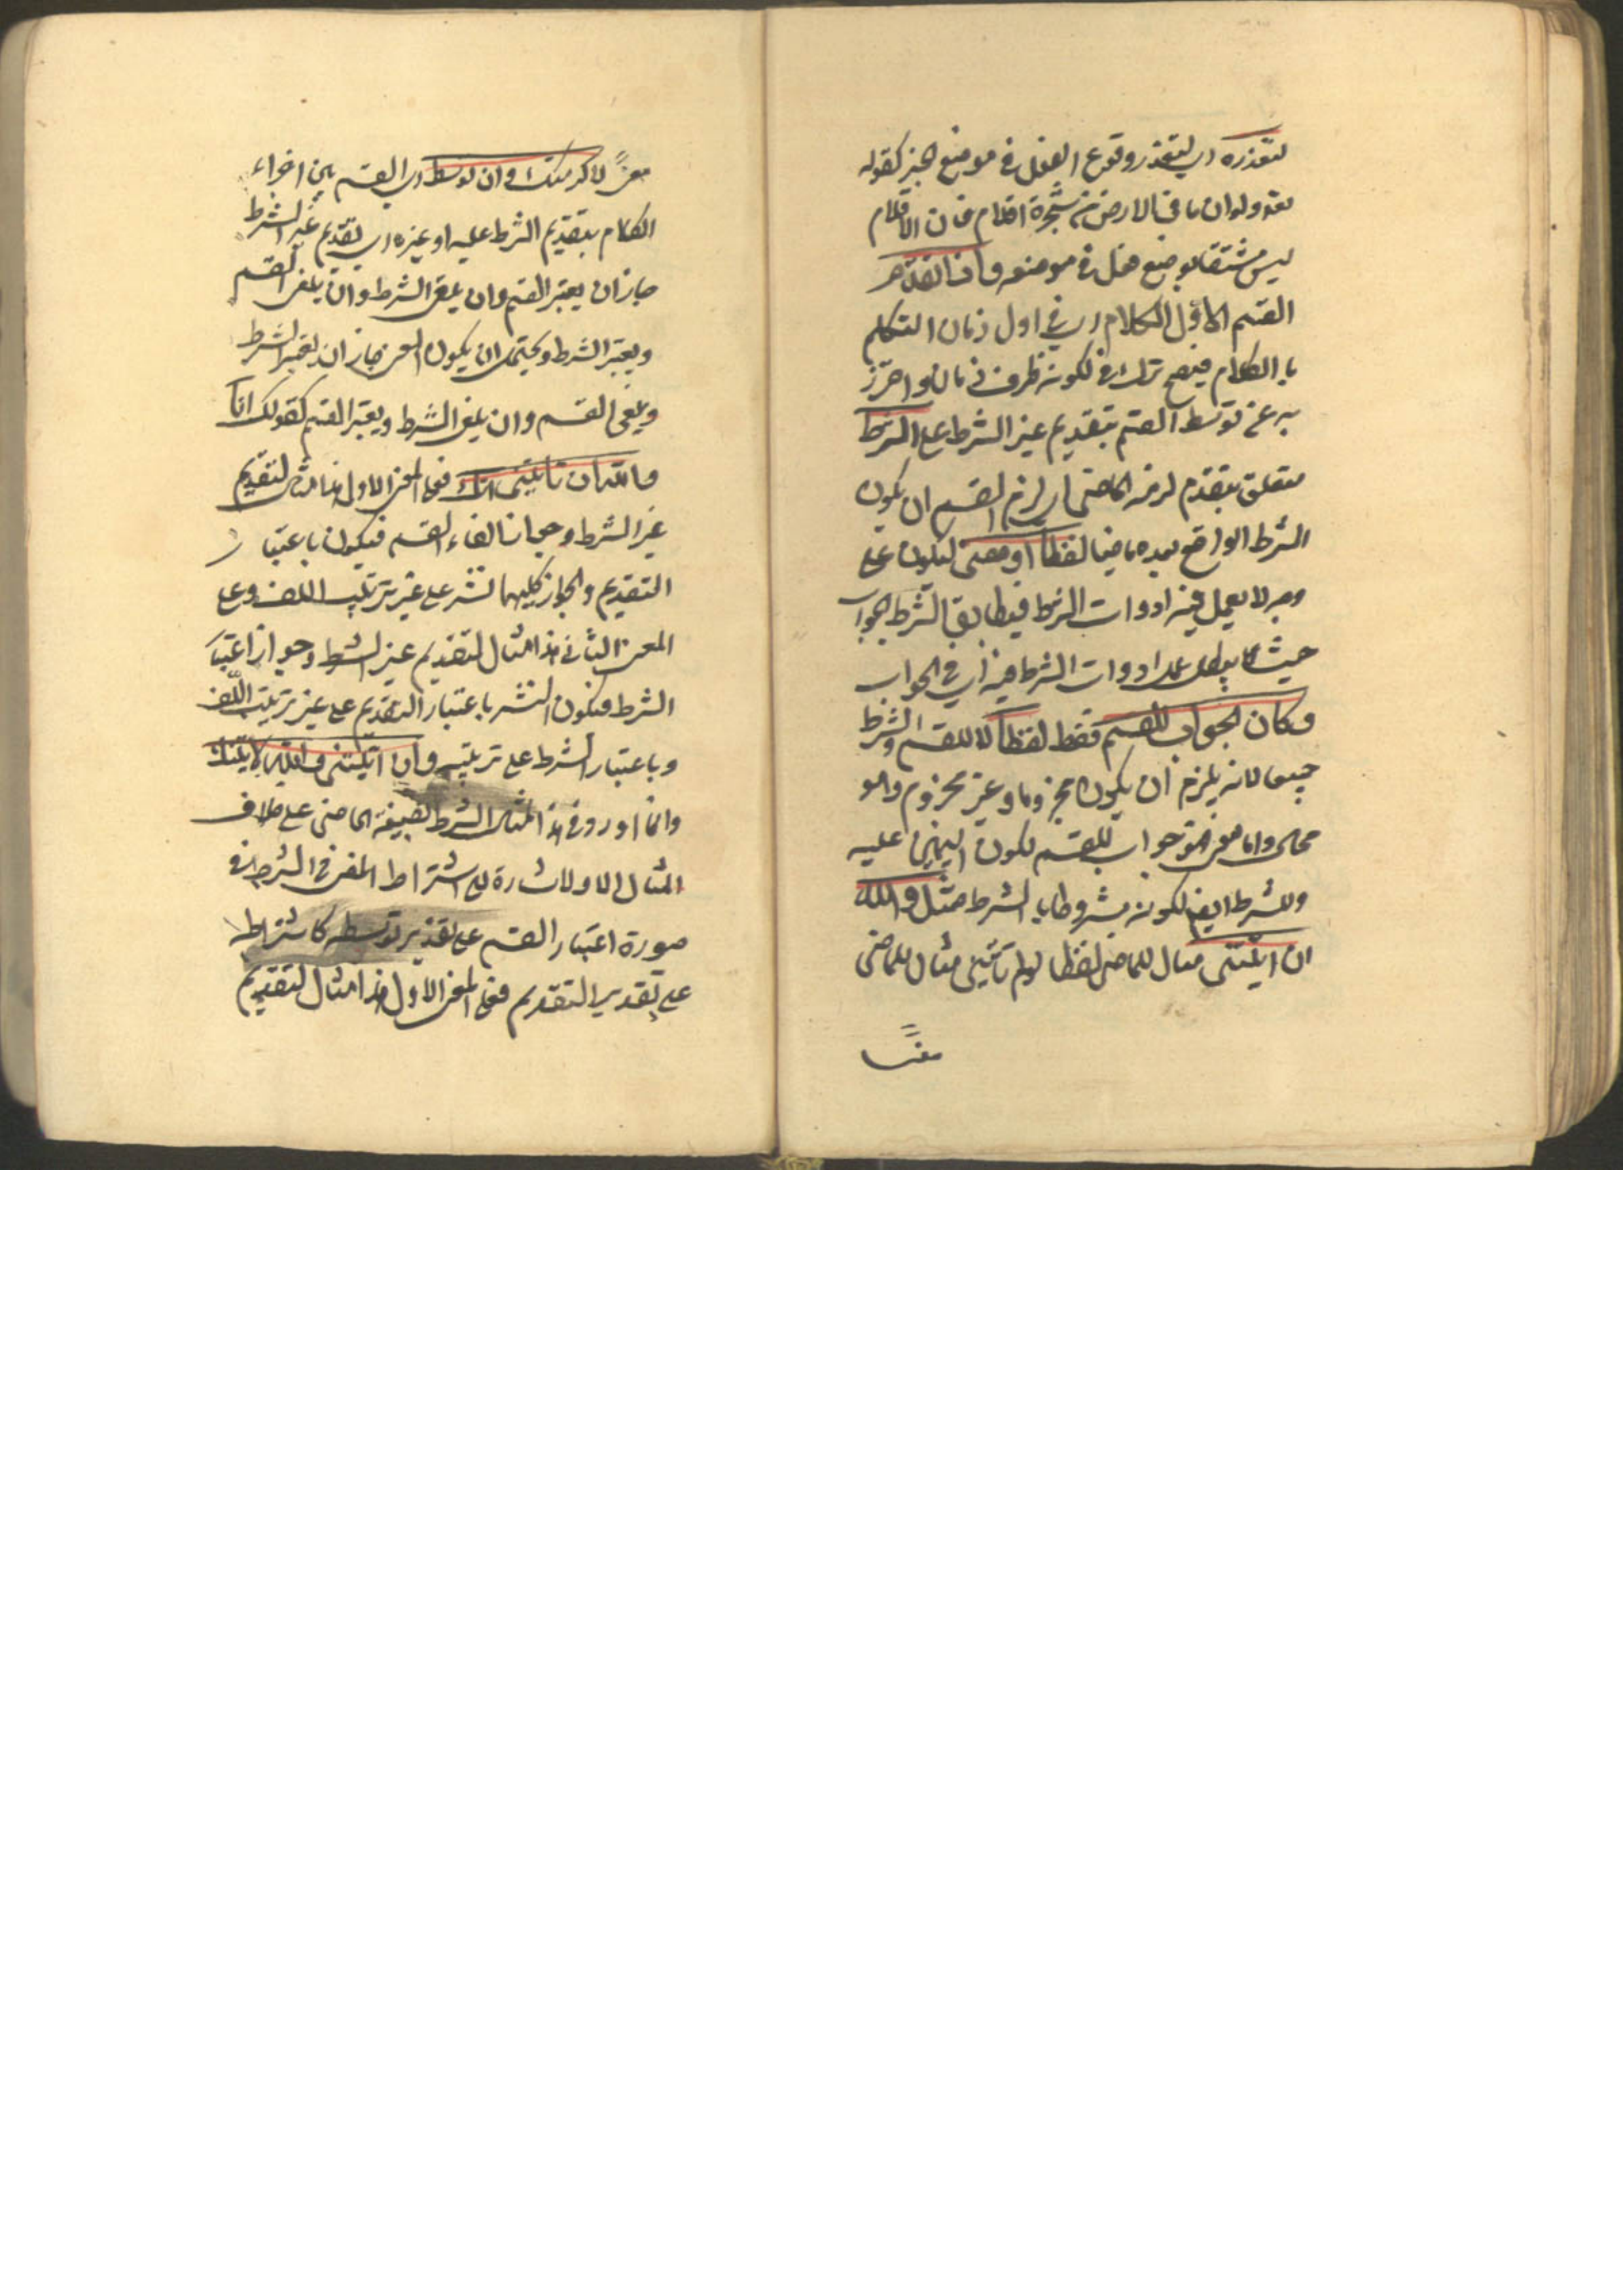 لتعذره اى لتعذر وقوع الفعل فى موضع الخبر كقوله
تعه ولو ان ما فى الارض من شجرة اقلام فان الاقلام
ليس مشتقا يوضع فعل فى موضعه واذا تقدم
القسم اول الكلام اى فى اول زمان التكلم
بالكلام فيصح ترك فى لكونه ظرف زمان واحترز
به عن توسط القسم بتقديم غير الشرط على الشرط
متعلق بتقدم لزمه الماضى اى لزم القسم ان يكون
الشرط الواقع بعده ماضيا لفظا او معنى ليكون على
وجه لا يعمل فيه ادوات الشرط فيطابق الشرط الجواب
حيث لا يعمل ادوات الشرط فيه اى فى الجواب
وكان الجواب للقسم فقط لفظا لا للقسم والشرط
جميعا لانه يلزم ان يكون مجزوما وغير مجزوم وهو
محال واما معنى فهو جواب للقسم لكون اليمين عليه
وللشرط ايضا لكونه مشروطا بالشرط مثل والله
ان اتيتنى مثال للماضى لفظا او لم تأتنى مثال للماضى
معنى
معنى لاكرمتك وان توسط اى القسم بين اجزاء
الكلام بتقديم الشرط عليه او غيره اى تقديم غير الشرط
جاز ان يعتبر القسم وان يلغى الشرط وان يلغى القسم
ويعتبر الشرط ويحتمل ان يكون المعنى جاز ان يعتبر الشرط
ويلغى القسم وان يلغى الشرط ويعتبر القسم كقولك انا
والله ان تأتينى آتك فعلى المعنى الاول هذا مثال لتقديم
غير الشرط وجواز الغاء القسم فيكون باعتبار
التقديم والجواز كليهما نشر على غير ترتيب اللف وعلى
المعنى الثانى هذا مثال لتقديم غير الشرط وجواز اعتبار
الشرط فيكون النشر باعتبار التقديم على غير ترتيب اللف
وباعتبار الشرط على ترتيبه وان اتيتنى والله لآتينك
وانما اورد فى هذا المثال الشرط بصيغة الماضى على خلاف
المثال الاول اشارة الى اشتراط المضى فى الشرط فى
صورة اعتبار القسم على تقدير توسطه كاشتراطه
على تقدير التقديم فعلى المعنى الاول هذا مثال لتقديم